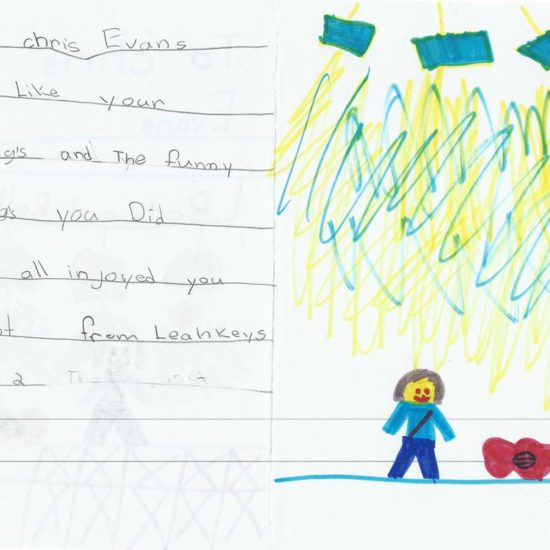 chris Evans
Like your
g's and The funny
g's you Did
all injoyed you
ot from Leahkeys
2